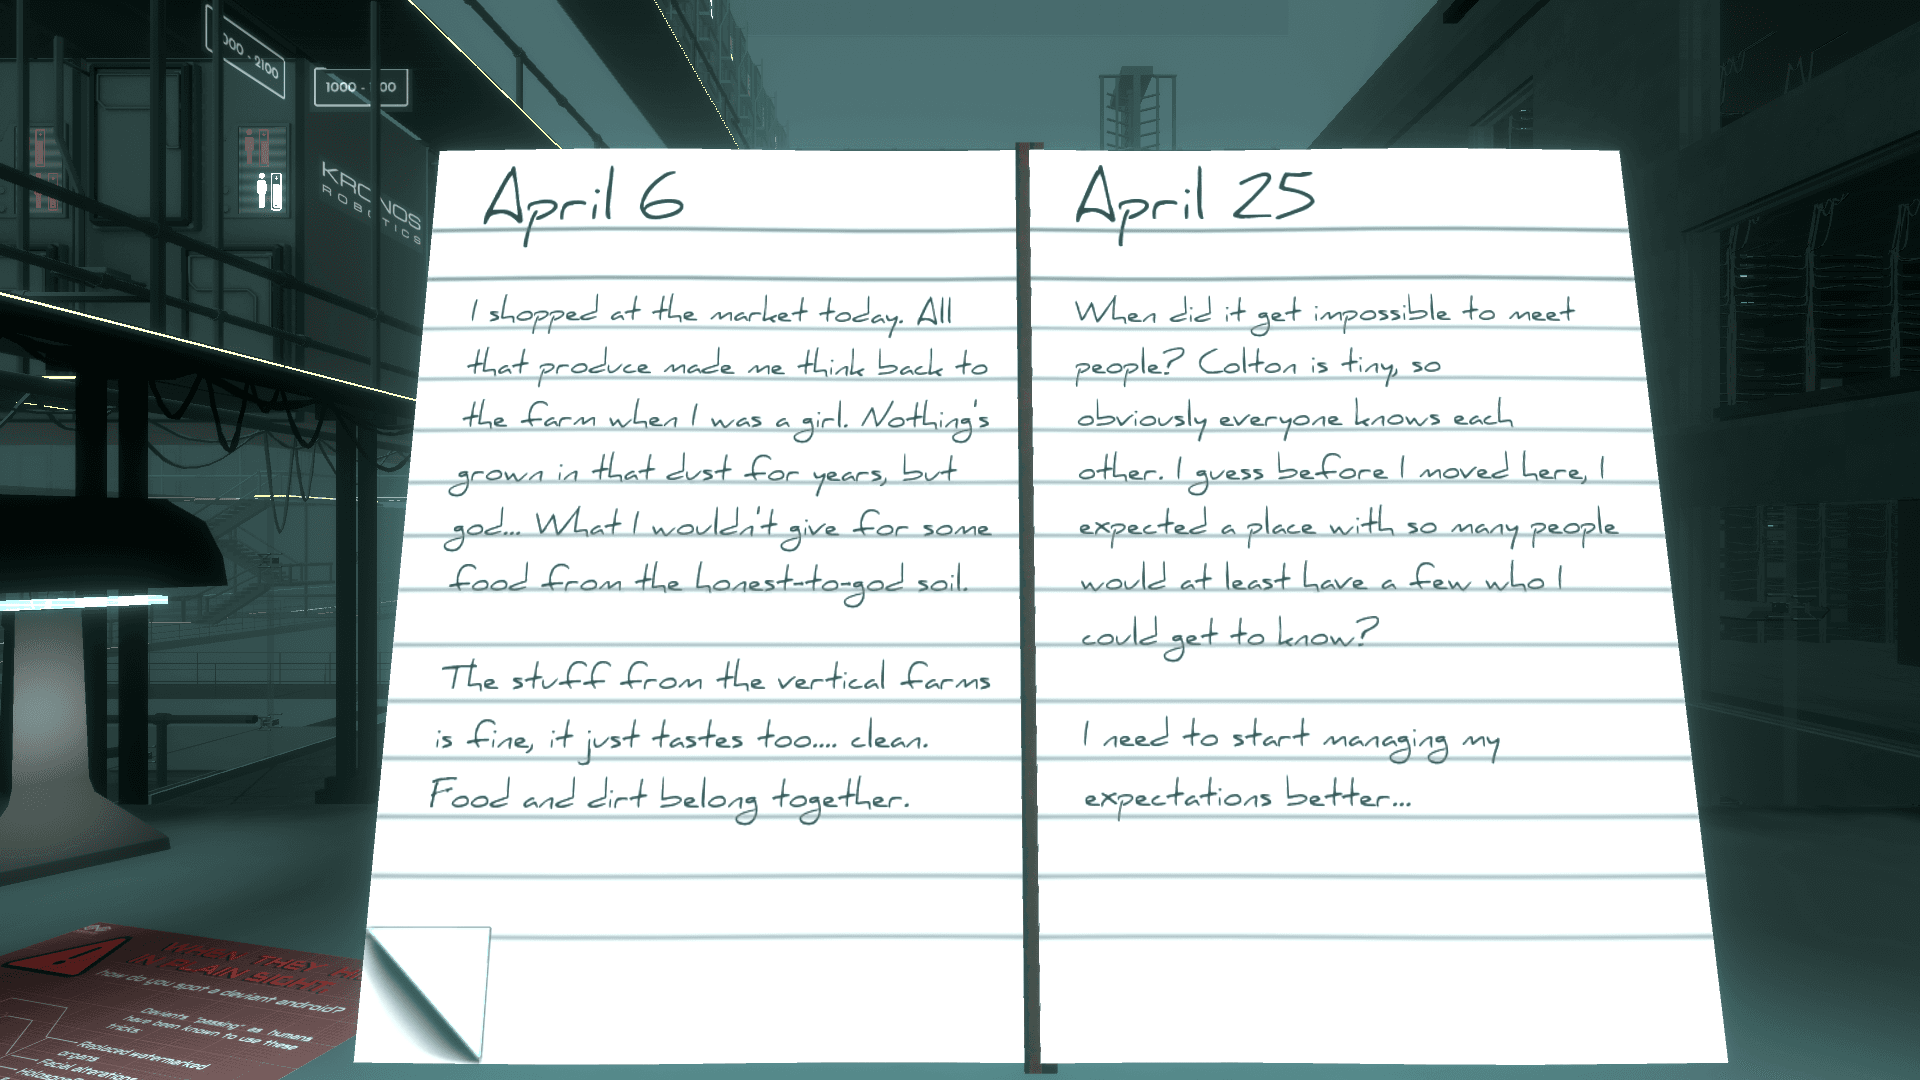 000 - 2100
1000 - 00
KRONOS
ROBOTICS
April 6
I shopped at the market today. All
that produce made me think back to
the farm when I was a girl. Nothing's
grown in that dust for years, but
god... What I wouldn't give for some
food from the honest-to-god soil.
The stuff from the vertical farms
is fine, it just tastes too.... clean.
Food and dirt belong together.
April 25
When did it get impossible to meet
people? Colton is tiny, so
obviously everyone knows each
other. I guess before I moved here, I
expected a place with so many people
would at least have a few who I
could get to know?
I need to start managing my
expectations better...
WHEN THEY
IN PLAIN SIGHT:
how do you spot a deviant android?
Deviants "passing" as humans
have been known to use these
tricks:
Replaced watermarked
organs
Facial alterations